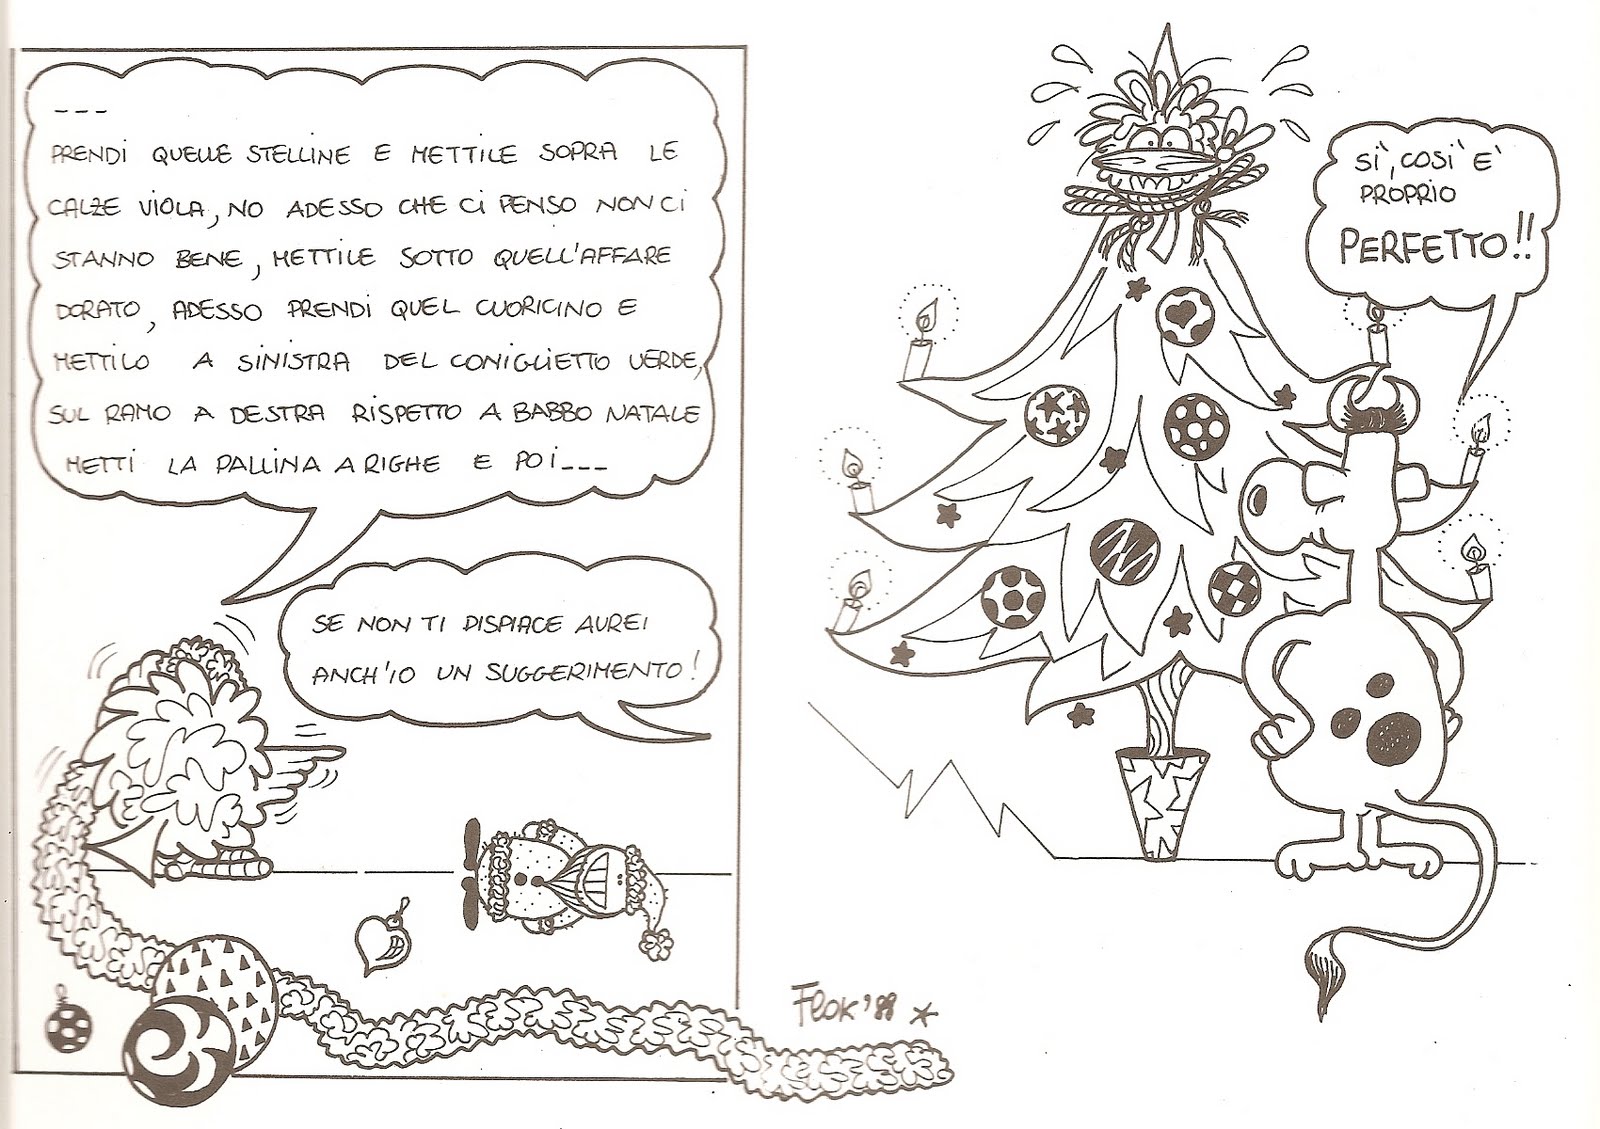 ---
PRENDI QUELLE STELLINE E METTILE SOPRA LE
CALZE VIOLA, NO ADESSO CHE CI PENSO NON CI
STANNO BENE, METTILE SOTTO QUELL'AFFARE
DORATO, ADESSO PRENDI QUEL CUORICINO E
METTILO A SINISTRA DEL CONIGLIETTO VERDE,
SUL RAMO A DESTRA RISPETTO A BABBO NATALE
METTI LA PALLINA A RIGHE E POI---
SE NON TI DISPIACE AUREI
ANCH'IO UN SUGGERIMENTO!
SÌ, COSÌ È
PROPRIO
PERFETTO!!
Flok '88